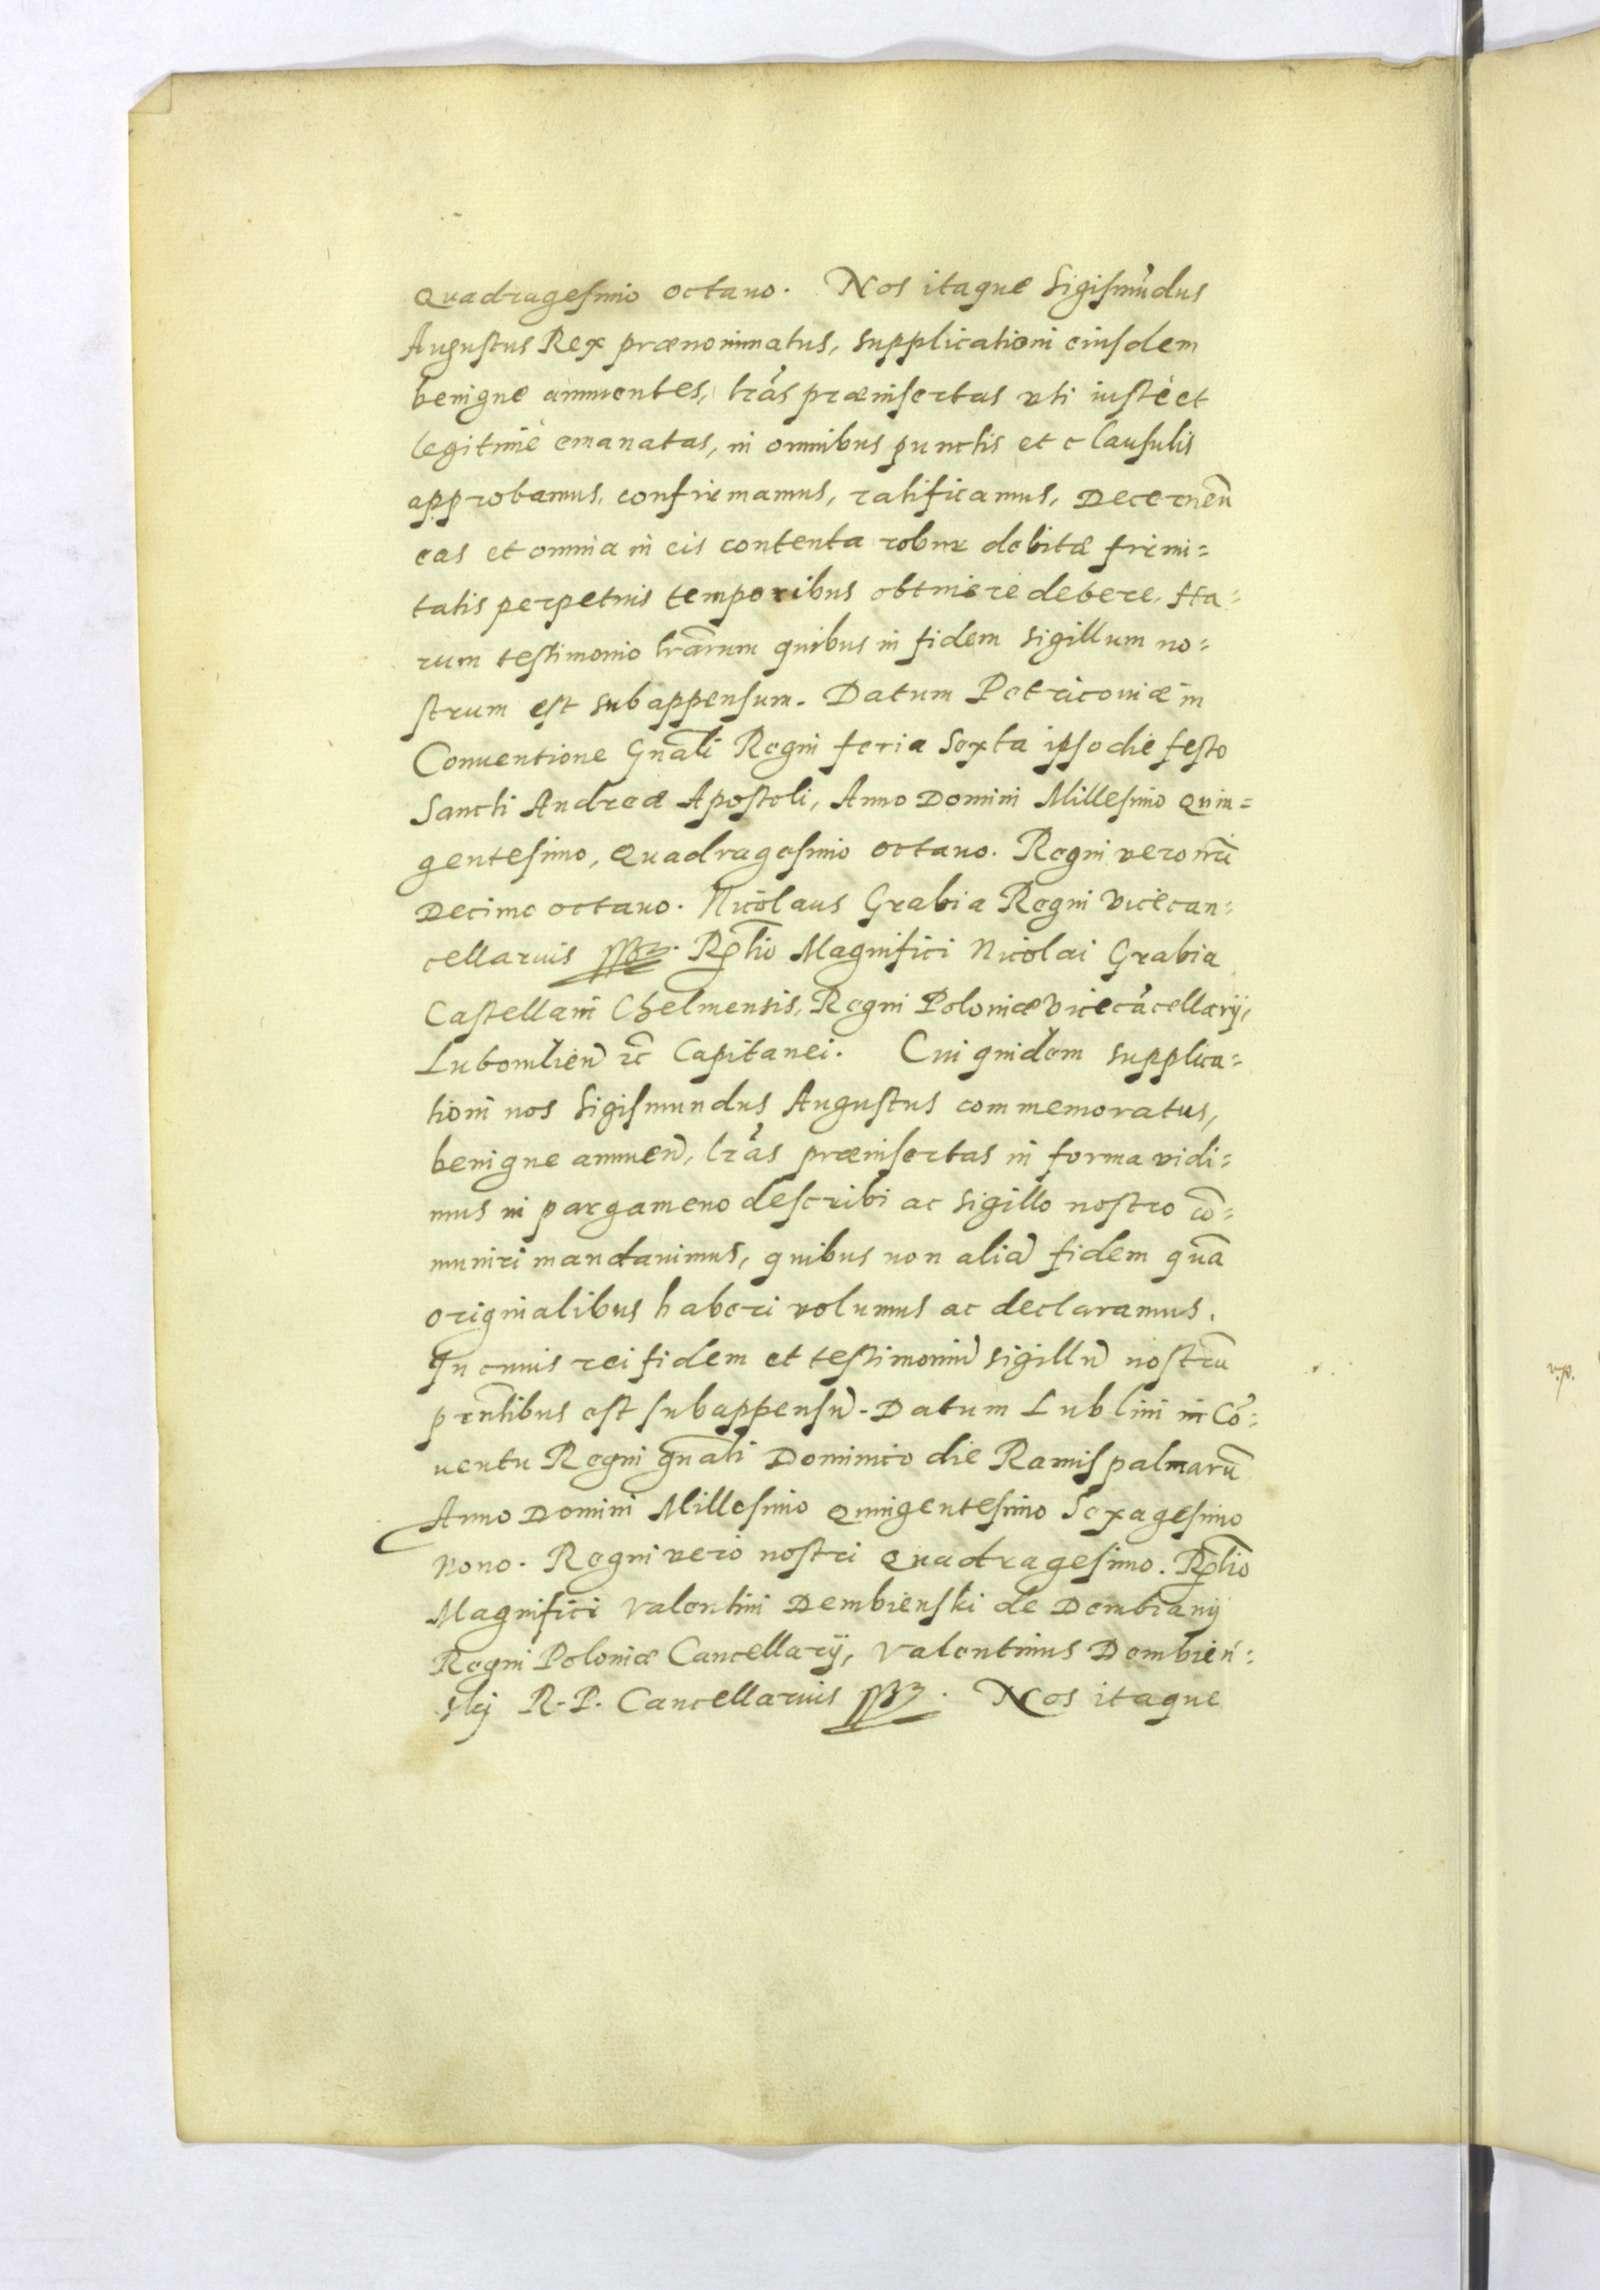 Quadragesimo octauo. Nos itaque Sigismũdus
Augustus Rex prænominatus, supplicationi eiusdem
benigne annuentes, lr̃as præinsertas vti iustè et
legitimè emanatas, in omnibus punctis et clausulis
approbamus, confirmamus, ratificamus, Decernen̄
eas et omnia in eis contenta robur debitæ firmi=
tatis perpetuis temporibus obtinere debere, Ha=
rum testimonio lr̃arum quibus in fidem sigillum no=
strum est subappensum. Datum Petricouiæ in
Conuentione Gn̄ali Regni feria Sexta ipso die festo
Sancti Andreæ Apostoli, Anno Domini Millesimo Quin=
gentesimo, Quadragesimo octauo. Regni vero nr̃i
Decimo octauo. Nicolaus Grabia Regni Vicecan=
cellarius sspt. Rl̃tio Magnifici Nicolai Grabia
Castellani Chelmensis, Regni Poloniæ Vicecãcellarij,
Lubomlien̄ rc̃ Capitanei. Cui quidem supplica=
tioni nos Sigismundus Augustus commemoratus,
benigne annuen̄, lr̃as præinsertas in forma vidi=
mus in pargameno describi ac sigillo nostro cõ=
muniri mandauimus, quibus non aliã fidem quã
originalibus haberi volumus ac declaramus.
In cuius rei fidem et testimoniũ sigillũ nostrũ
prn̄tibus est subappensũ. Datum Lublini in Cõ=
uentu Regni gn̄ali Dominico die Ramispalmarũ
Anno Domini Millesimo Quingentesimo Sexagesimo
Nono. Regni vero nostri Quadragesimo. Rl̃tio
Magnifici Valentini Dembienski de Dembiany
Regni Poloniæ Cancellarij, Valentinus Dembień=
skj R. P. Cancellarius sspt. Nos itaque
v.p.